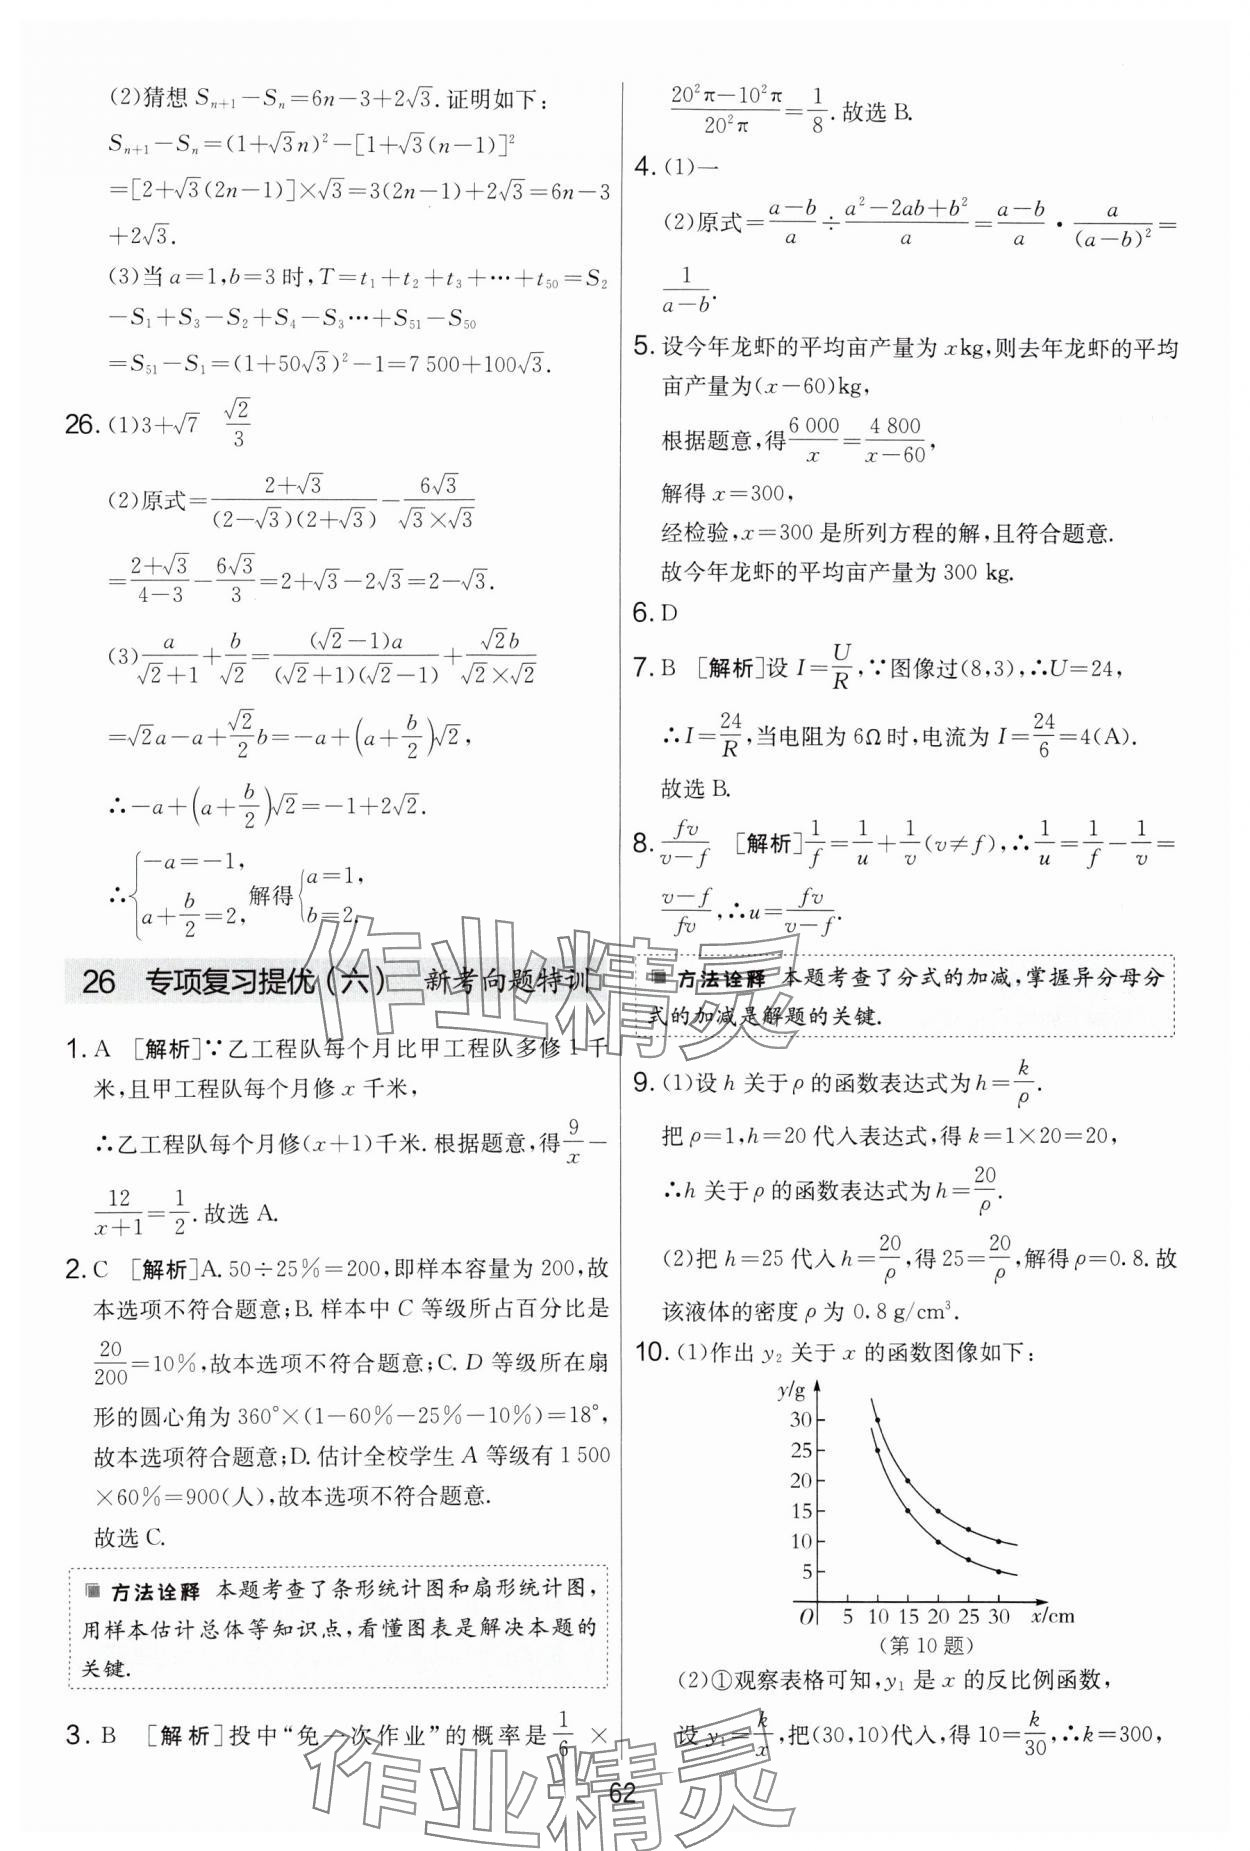 (2)猜想 Sₙ₊₁－Sₙ＝6n－3＋2√3.证明如下：
Sₙ₊₁－Sₙ＝(1＋√3n)²－[1＋√3(n－1)]²
＝[2＋√3(2n－1)]×√3＝3(2n－1)＋2√3＝6n－3
＋2√3.
(3)当 a＝1,b＝3 时,T＝t₁＋t₂＋t₃＋⋯＋t₅₀＝S₂
－S₁＋S₃－S₂＋S₄－S₃⋯＋S₅₁－S₅₀
＝S₅₁－S₁＝(1＋50√3)²－1＝7 500＋100√3.
26. (1)3＋√7　√2/3
(2)原式＝(2＋√3)/((2－√3)(2＋√3))－6√3/(√3×√3)
＝(2＋√3)/(4－3)－6√3/3＝2＋√3－2√3＝2－√3.
(3)a/(√2＋1)＋b/√2＝(√2－1)a/((√2＋1)(√2－1))＋√2b/(√2×√2)
＝√2a－a＋(√2/2)b＝－a＋(a＋b/2)√2,
∴－a＋(a＋b/2)√2＝－1＋2√2.
∴{－a＝－1, a＋b/2＝2, 解得{a＝1, b＝2.
26　专项复习提优(六)　新考向题特训
1. A　[解析]∵乙工程队每个月比甲工程队多修 1 千
米,且甲工程队每个月修 x 千米,
∴乙工程队每个月修(x＋1)千米.根据题意,得9/x－
12/(x＋1)＝1/2.故选 A.
2. C　[解析]A.50÷25%＝200,即样本容量为 200,故
本选项不符合题意;B.样本中 C 等级所占百分比是
20/200＝10%,故本选项不符合题意;C.D 等级所在扇
形的圆心角为 360°×(1－60%－25%－10%)＝18°,
故本选项符合题意;D.估计全校学生 A 等级有 1 500
×60%＝900(人),故本选项不符合题意.
故选 C.
方法诠释 本题考查了条形统计图和扇形统计图,
用样本估计总体等知识点,看懂图表是解决本题的
关键.
3. B　[解析]投中“免一次作业”的概率是1/6×
(20²π－10²π)/20²π＝1/8.故选 B.
4. (1)一
(2)原式＝(a－b)/a÷(a²－2ab＋b²)/a＝(a－b)/a·a/(a－b)²＝
1/(a－b).
5. 设今年龙虾的平均亩产量为 x kg,则去年龙虾的平均
亩产量为(x－60)kg,
根据题意,得6 000/x＝4 800/(x－60),
解得 x＝300,
经检验,x＝300 是所列方程的解,且符合题意.
故今年龙虾的平均亩产量为 300 kg.
6. D
7. B　[解析]设 I＝U/R,∵图像过(8,3),∴U＝24,
∴I＝24/R,当电阻为 6Ω时,电流为 I＝24/6＝4(A).
故选 B.
8. fv/(v－f)　[解析]1/f＝1/u＋1/v(v≠f),∴1/u＝1/f－1/v＝
(v－f)/fv,∴u＝fv/(v－f).
方法诠释 本题考查了分式的加减,掌握异分母分
式的加减是解题的关键.
9. (1)设 h 关于ρ的函数表达式为 h＝k/ρ.
把ρ＝1,h＝20 代入表达式,得 k＝1×20＝20,
∴h 关于ρ的函数表达式为 h＝20/ρ.
(2)把 h＝25 代入 h＝20/ρ,得 25＝20/ρ,解得ρ＝0.8.故
该液体的密度ρ为 0.8 g/cm³.
10. (1)作出 y₂ 关于 x 的函数图像如下：
y/g
30
25
20
15
10
5
O 5 10 15 20 25 30 x/cm
(第 10 题)
(2)①观察表格可知,y₁ 是 x 的反比例函数,
设 y₁＝k/x,把(30,10)代入,得 10＝k/30,∴k＝300,
62
作业精灵
作业精灵